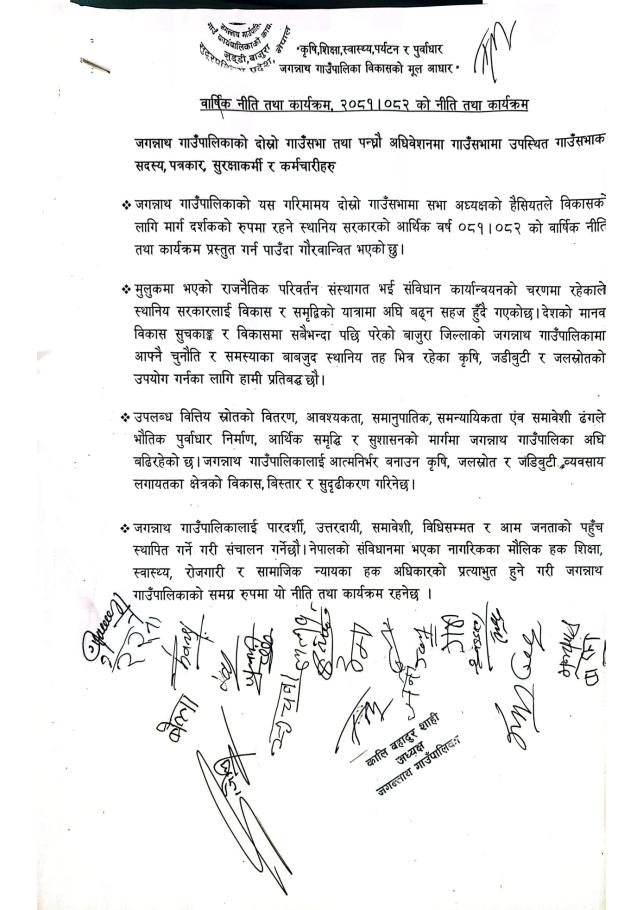 गाउँ कार्यपालिकाको
जुडी, बाजुरा, नेपाल
"कृषि,शिक्षा,स्वास्थ्य,पर्यटन र पुर्वाधार
जगन्नाथ गाउँपालिका विकासको मूल आधार"
वार्षिक नीति तथा कार्यक्रम, २०८१।०८२ को नीति तथा कार्यक्रम
जगन्नाथ गाउँपालिकाको दोस्रो गाउँसभा तथा पन्ध्रौ अधिवेशनमा गाउँसभामा उपस्थित गाउँसभाक
सदस्य, पत्रकार, सुरक्षाकर्मी र कर्मचारीहरु
❖ जगन्नाथ गाउँपालिकाको यस गरिमामय दोस्रो गाउँसभामा सभा अध्यक्षको हैसियतले विकासक
लागि मार्ग दर्शकको रुपमा रहने स्थानिय सरकारको आर्थिक वर्ष ०८१।०८२ को वार्षिक नीति
तथा कार्यक्रम प्रस्तुत गर्न पाउँदा गौरवान्वित भएको छु।
❖ मुलुकमा भएको राजनैतिक परिवर्तन संस्थागत भई संविधान कार्यान्वयनको चरणमा रहेकाले
स्थानिय सरकारलाई विकास र समृद्विको यात्रामा अघि बढ्न सहज हुँदै गएकोछ।देशको मानव
विकास सुचकाङ्क र विकासमा सबैभन्दा पछि परेको बाजुरा जिल्लाको जगन्नाथ गाउँपालिकामा
आफ्नै चुनौति र समस्याका बाबजुद स्थानिय तह भित्र रहेका कृषि, जडीबुटी र जलस्रोतको
उपयोग गर्नका लागि हामी प्रतिबद्ध छौ।
❖ उपलब्ध वित्तिय स्रोतको वितरण, आवश्यकता, समानुपातिक, समन्यायिकता एंव समावेशी ढंगले
भौतिक पुर्वाधार निर्माण, आर्थिक समृद्धि र सुशासनको मार्गमा जगन्नाथ गाउँपालिका अघि
बढिरहेको छ। जगन्नाथ गाउँपालिकालाई आत्मनिर्भर बनाउन कृषि, जलस्रोत र जडिबुटी व्यवसाय
लगायतका क्षेत्रको विकास, बिस्तार र सुदृढीकरण गरिनेछ।
❖ जगन्नाथ गाउँपालिकालाई पारदर्शी, उत्तरदायी, समावेशी, विधिसम्मत र आम जनताको पहुँच
स्थापित गर्ने गरी संचालन गर्नेछौ।नेपालको संविधानमा भएका नागरिकका मौलिक हक शिक्षा,
स्वास्थ्य, रोजगारी र सामाजिक न्यायका हक अधिकारको प्रत्याभुत हुने गरी जगन्नाथ
गाउँपालिकाको समग्र रुपमा यो नीति तथा कार्यक्रम रहनेछ ।
कालि बहादुर शाही
अध्यक्ष
जगन्नाथ गाउँपालिका